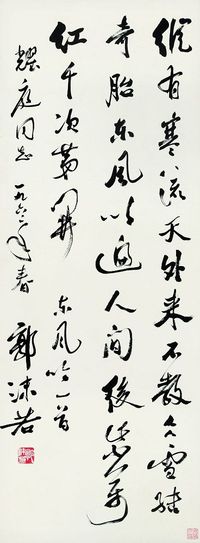 縱有寒流天外来不教冰雪結
奇胎东风吹遍人间後紫万
红千次第開 东风吟一首
耀庭同志 一九六二年春 郭沫若